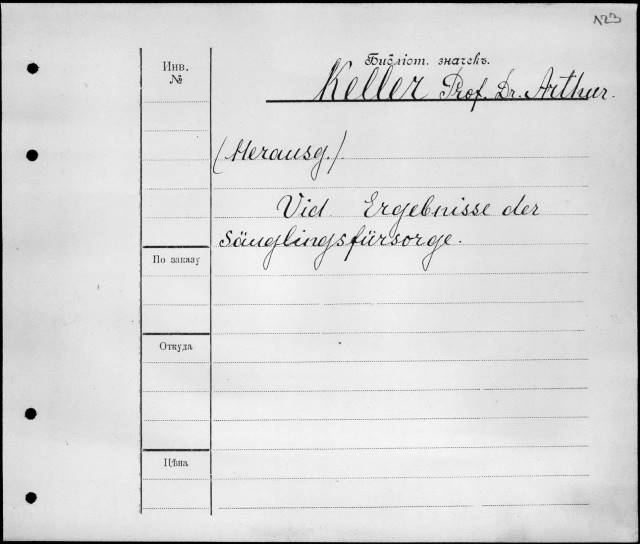 123
Инв.
№
Библіот. значекъ.
Keller Prof. Dr. Arthur.
(Herausg.)
Vid Ergebnisse der
Säuglingsfürsorge.
По заказу
Откуда
Цѣна